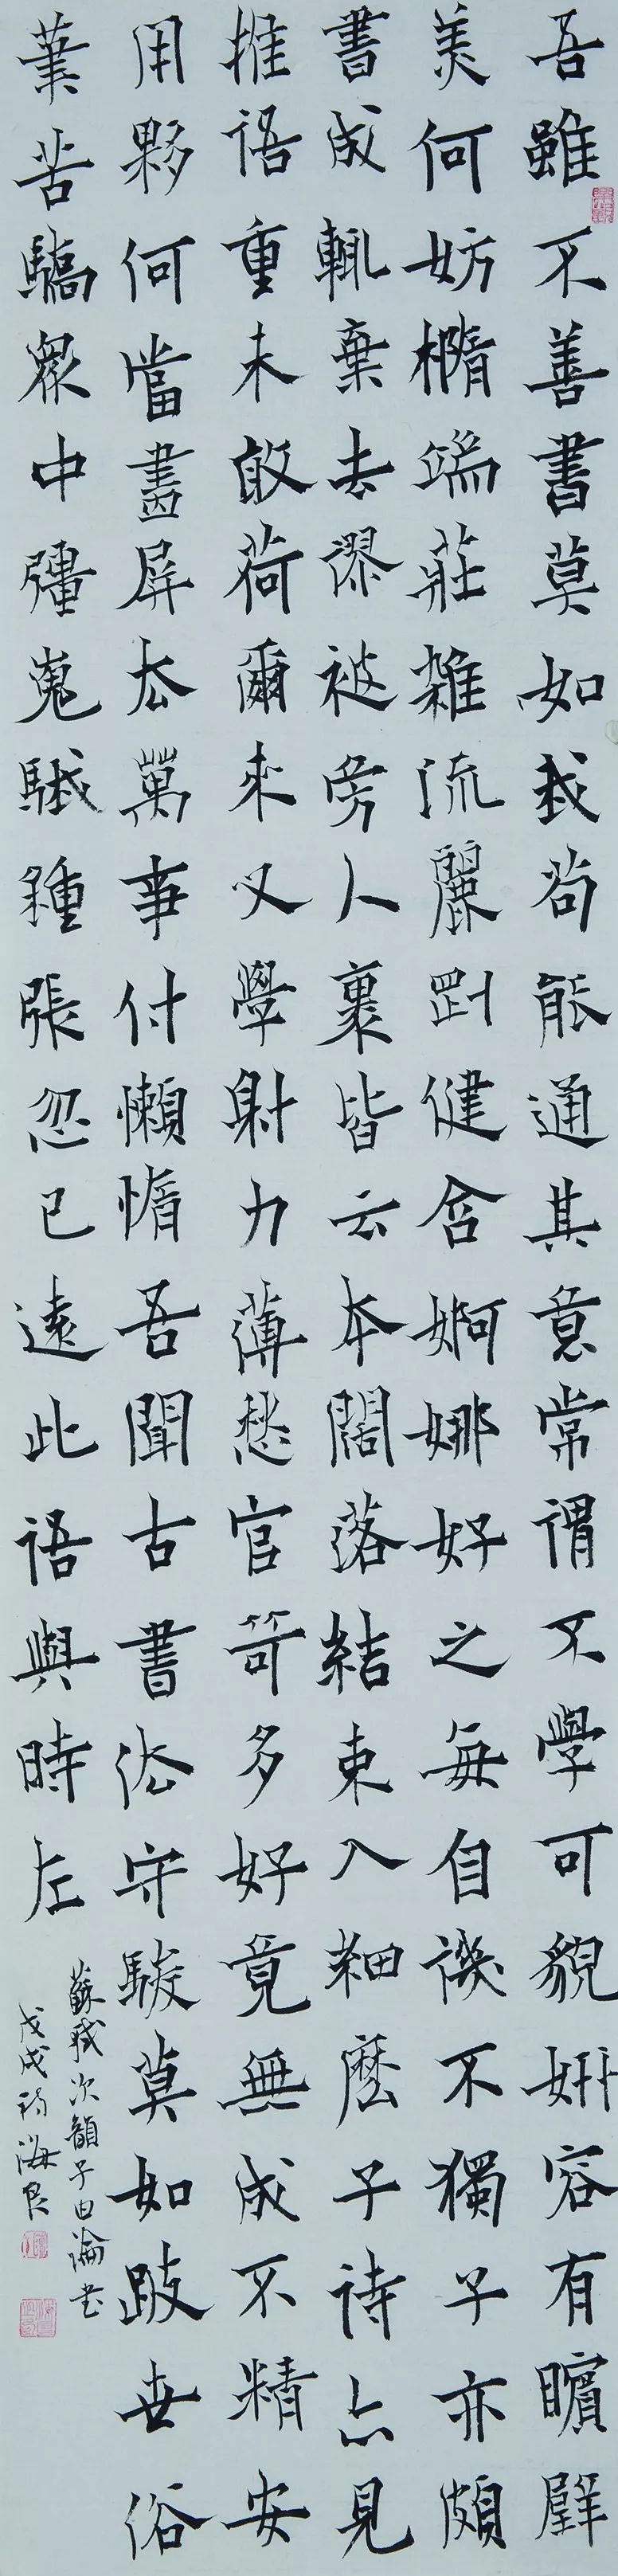 吾雖不善書莫如我茍能通其意常謂不學可貌妍容有矉璧
美何妨橢端莊雜流麗剛健含婀娜好之每自譏不獨子亦頗
書成輒棄去謬被旁人裹皆云本闊落結束入細麼子詩亦見
推語重未敢荷爾來又學射力薄愁官笴多好竟無成不精安
用夥何當盡屏去萬事付懶惰吾聞古書法守駿莫如跛世俗
筆苦驕眾中強嵬騀鍾張忽已遠此語與時左
蘇軾次韻子由論書
戊戌 海良